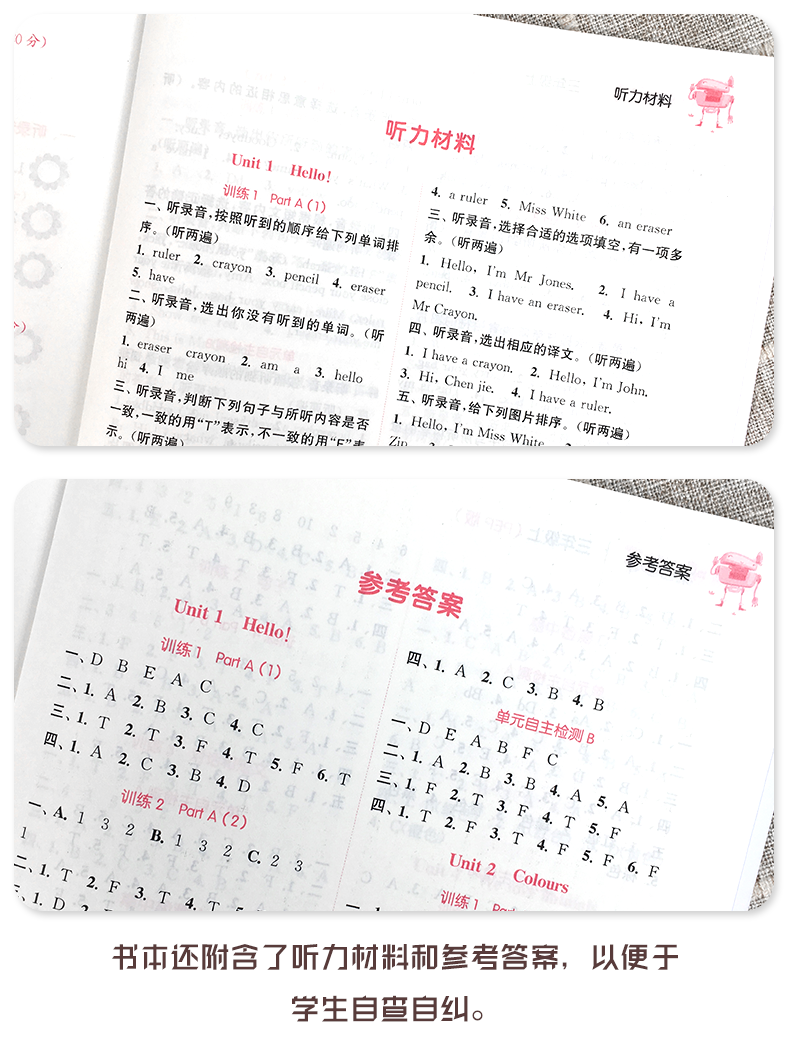 0分）
听力材料
听力材料
Unit 1 Hello!
训练1 Part A（1）
一、听录音，按照听到的顺序给下列单词排
序。（听两遍）
1. ruler 2. crayon 3. pencil 4. eraser
5. have
二、听录音，选出你没有听到的单词。（听
两遍）
1. eraser crayon 2. am a 3. hello
hi 4. I me
三、听录音，判断下列句子与所听内容是否
一致，一致的用“T”表示，不一致的用“F”表
示。（听两遍）
4. a ruler 5. Miss White 6. an eraser
三、听录音，选择合适的选项填空，有一项多
余。（听两遍）
1. Hello, I'm Mr Jones. 2. I have a
pencil. 3. I have an eraser. 4. Hi, I'm
Mr Crayon.
四、听录音，选出相应的译文。（听两遍）
1. I have a crayon. 2. Hello, I'm John.
3. Hi, Chen jie. 4. I have a ruler.
五、听录音，给下列图片排序。（听两遍）
1. Hello, I'm Miss White
Zip
参考答案
参考答案
Unit 1 Hello!
训练1 Part A（1）
一、D B E A C
二、1. A 2. B 3. C 4. C
三、1. T 2. T 3. F 4. T 5. F 6. T
四、1. A 2. C 3. B 4. D
训练2 Part A（2）
一、A. 1 3 2 B. 1 3 2 C. 2 3
1
二、1. T 2. F 3. T 4. T 5.
三、1. D 2.
四、1. A 2. C 3. B 4. B
单元自主检测 B
一、D E A B F C
二、1. A 2. B 3. B 4. A 5. A
三、1. F 2. T 3. F 4. T 5. F
四、1. T 2. F 3. T 4. F 5. F 6. F
Unit 2 Colours
训练1 Part
一、1
书本还附含了听力材料和参考答案，以便于
学生自查自纠。